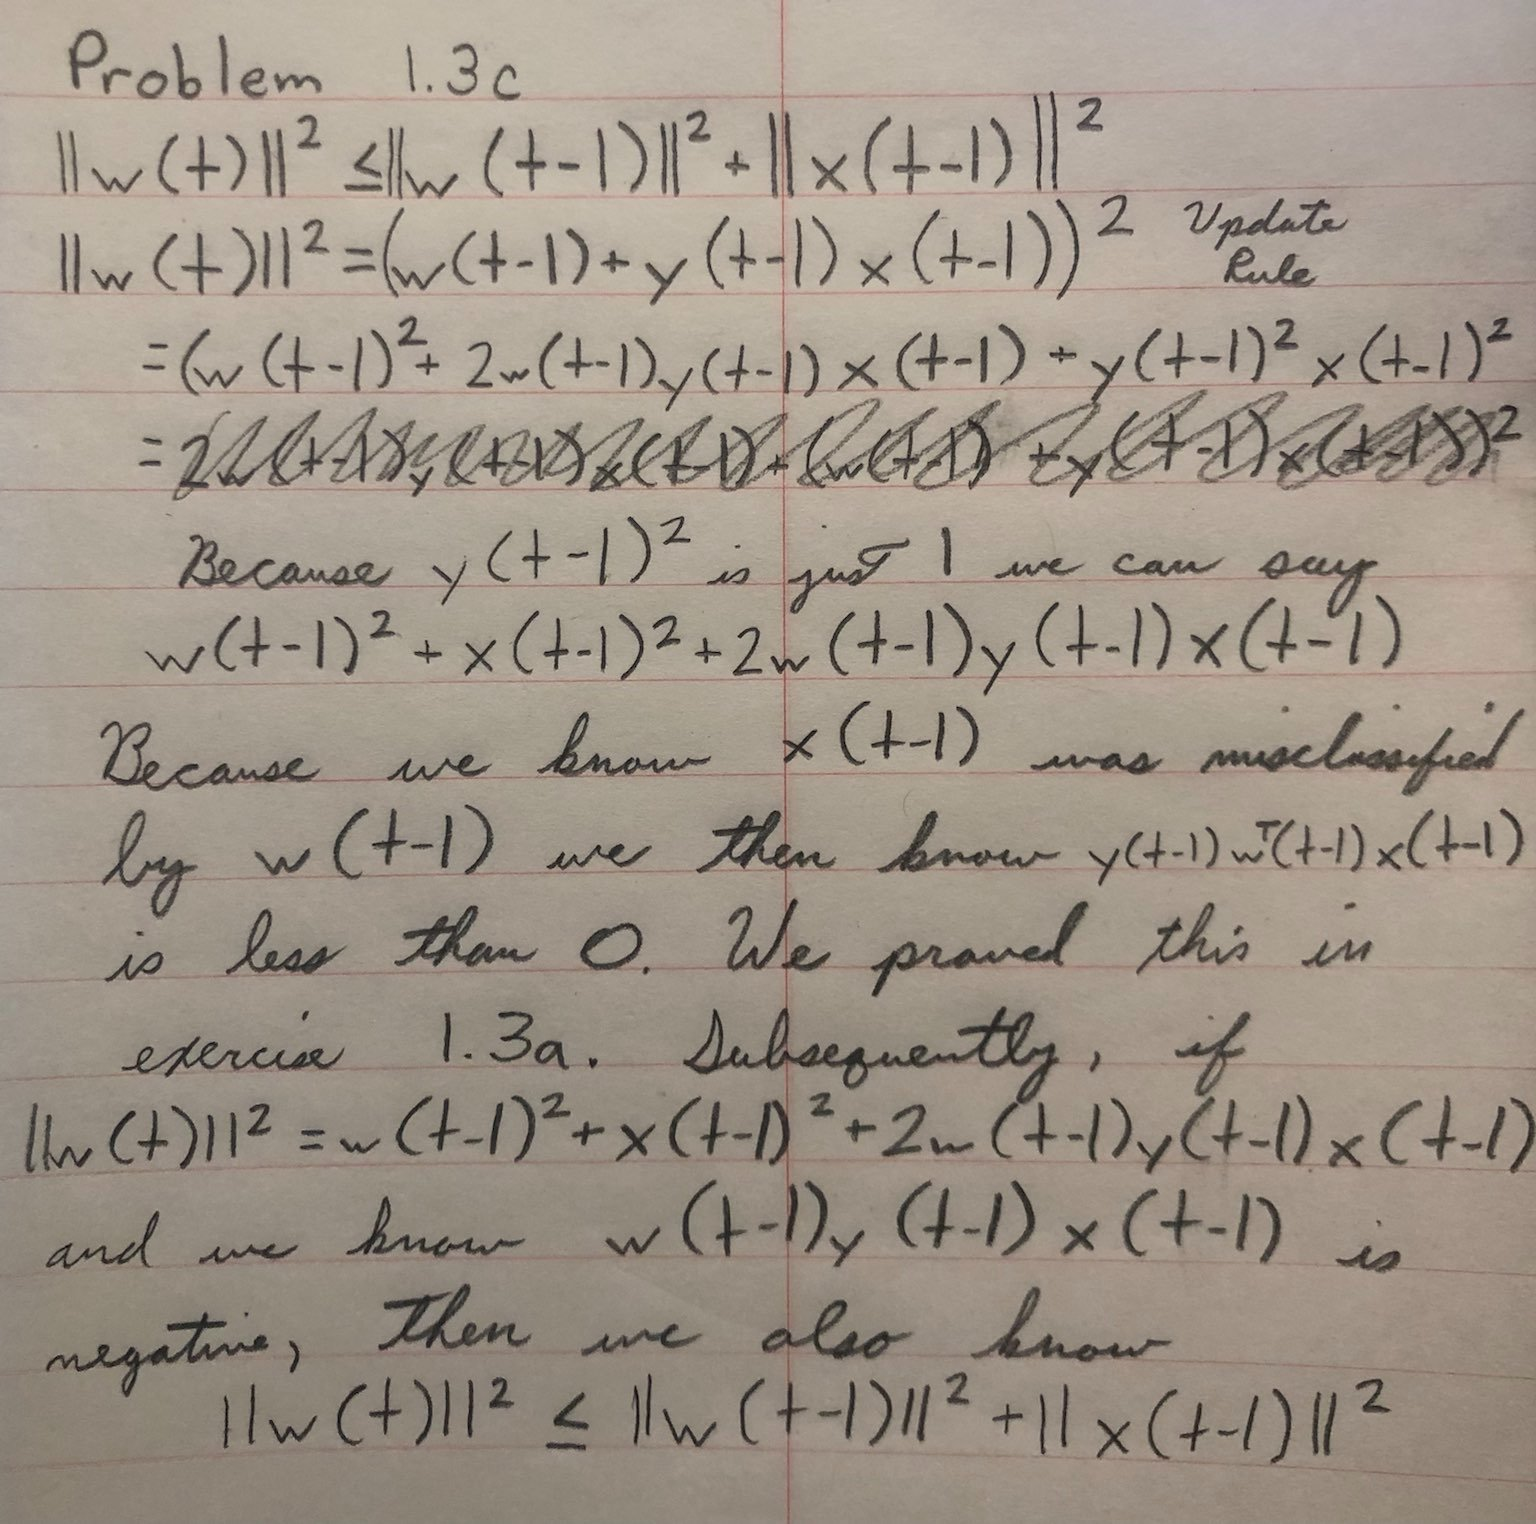 Problem 1.3c
||w(t)||² ≤ ||w(t-1)||² + ||x(t-1)||²
||w(t)||² = (w(t-1) + y(t-1) x(t-1))² Update Rule
= (w(t-1)² + 2w(t-1)y(t-1) x(t-1) + y(t-1)² x(t-1)²
= 2w(t-1)y(t-1)x(t-1) + (w(t-1) + y(t-1)x(t-1))²
Because y(t-1)² is just 1 we can say
w(t-1)² + x(t-1)² + 2w(t-1)y(t-1)x(t-1)
Because we know x(t-1) was misclassified
by w(t-1) we then know y(t-1)wᵀ(t-1)x(t-1)
is less than 0. We proved this in
exercise 1.3a. Subsequently, if
||w(t)||² = w(t-1)² + x(t-1)² + 2w(t-1)y(t-1)x(t-1)
and we know w(t-1)y(t-1)x(t-1) is
negative, then we also know
||w(t)||² ≤ ||w(t-1)||² + ||x(t-1)||²